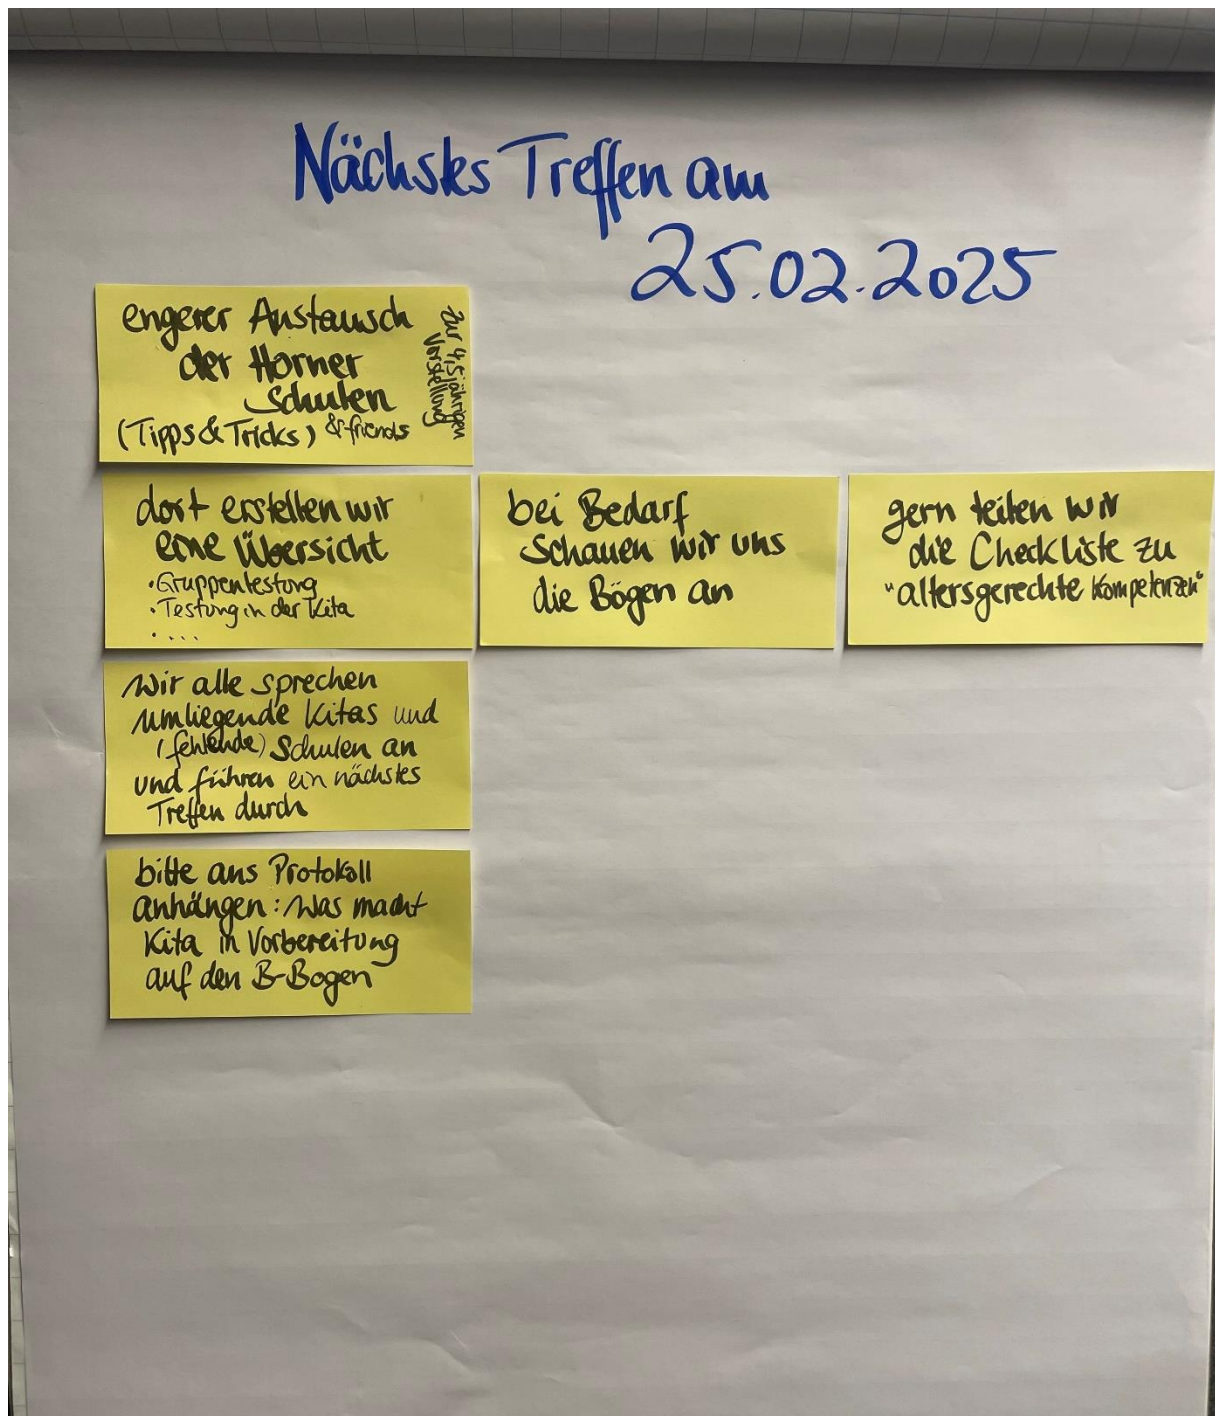 Nächstes Treffen am
25.02.2025
engerer Austausch
der Horner
Schulen
(Tipps & Tricks) & friends
Zur 4,5 jährigen
Vorstellung
dort erstellen wir
eine Übersicht
• Gruppentestung
• Testung in der Kita
• ...
bei Bedarf
schauen wir uns
die Bögen an
gern teilen wir
die Checkliste zu
"altersgerechte Kompetenzen"
Wir alle sprechen
umliegende Kitas und
(fehlende) Schulen an
und führen ein nächstes
Treffen durch
bitte ans Protokoll
anhängen: Was macht
Kita in Vorbereitung
auf den B-Bogen